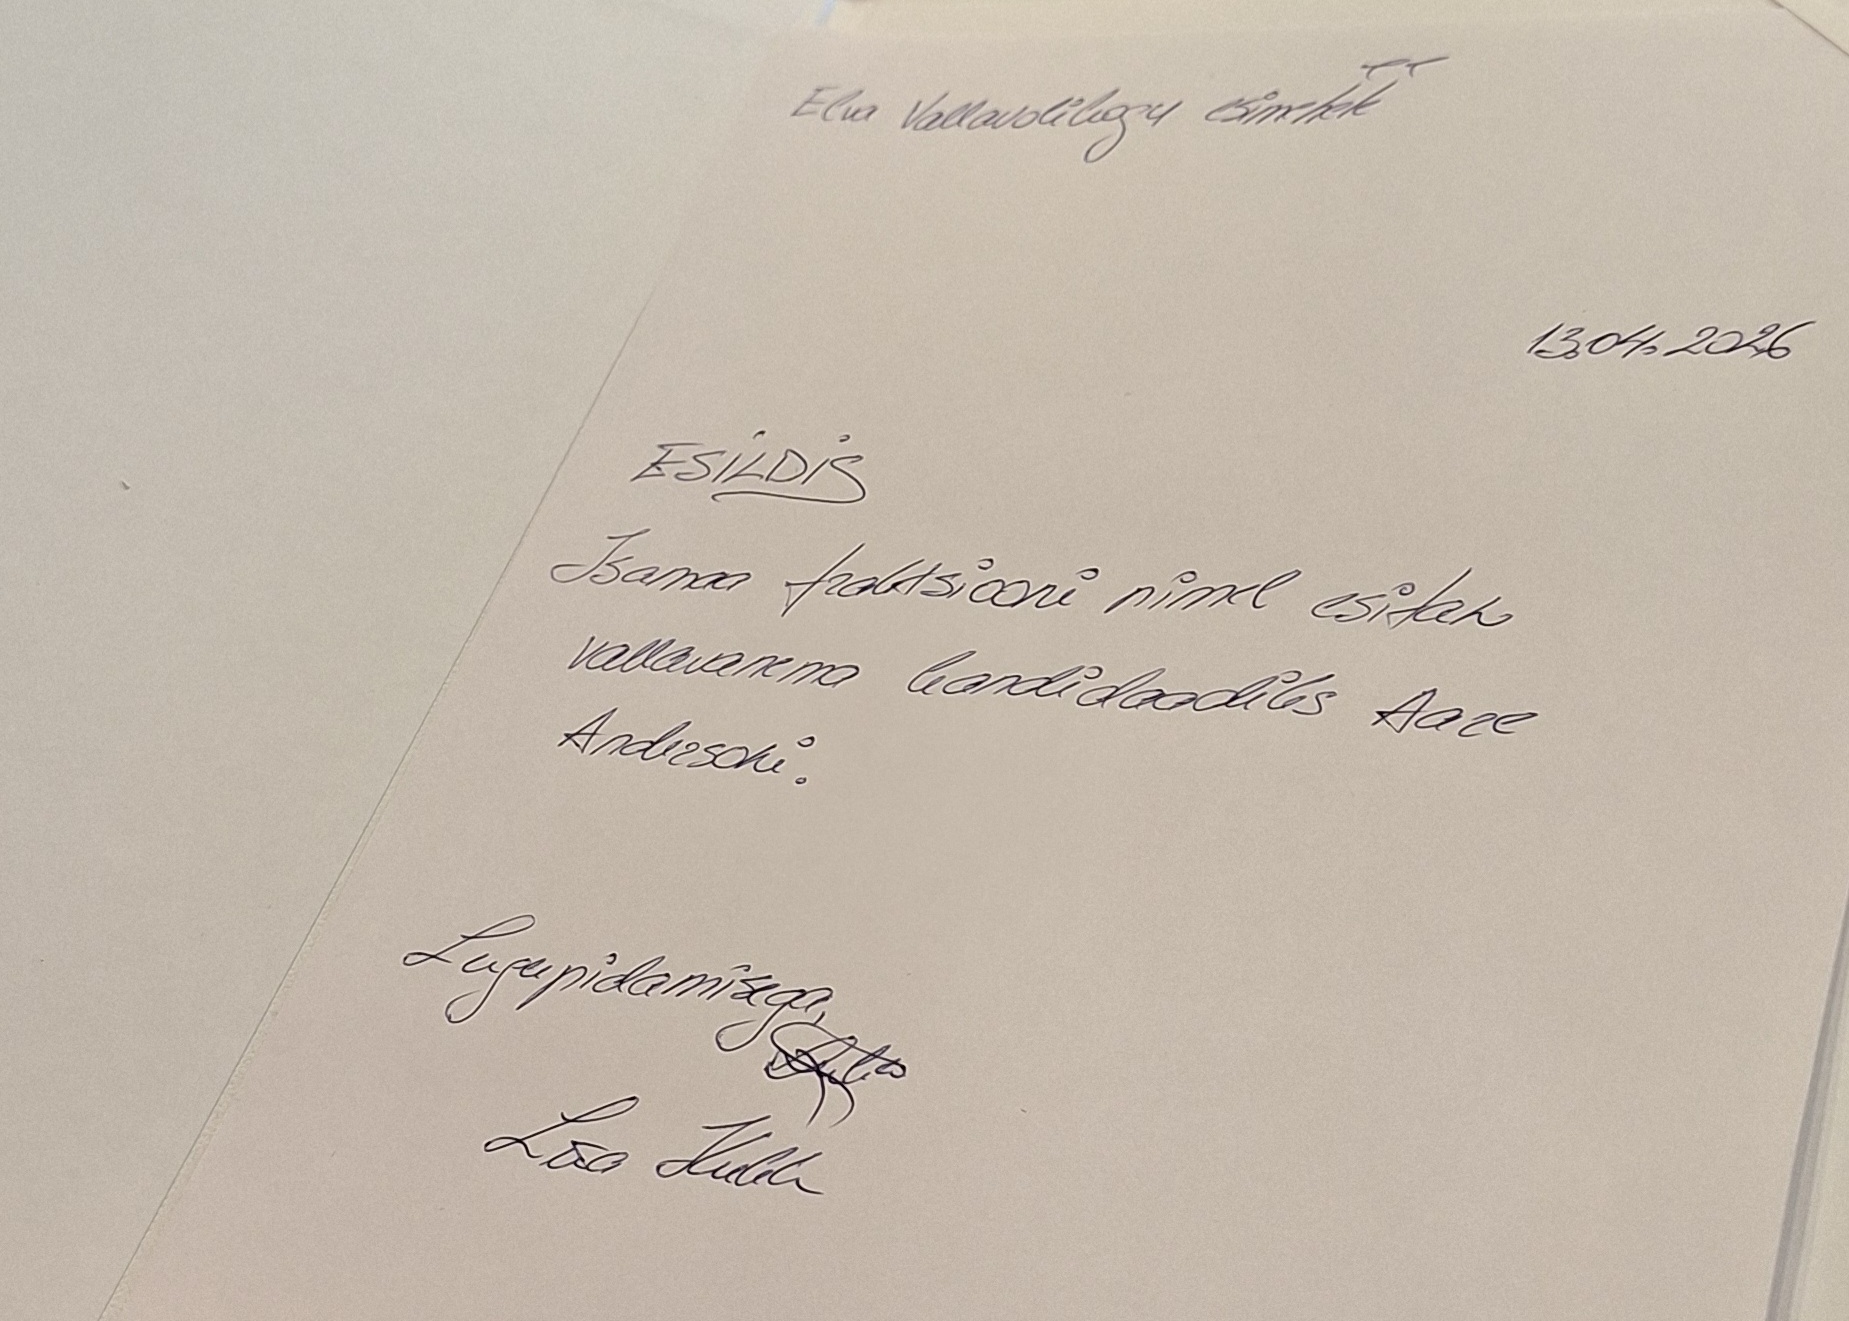 Elva Vallavolikogu esimehele
13.04.2026
ESILDIS
Isamaa fraktsiooni nimel esitan
vallavanema kandidaadiks Aare
Andersoni.
Lugupidamisega,
Liisa Kukk